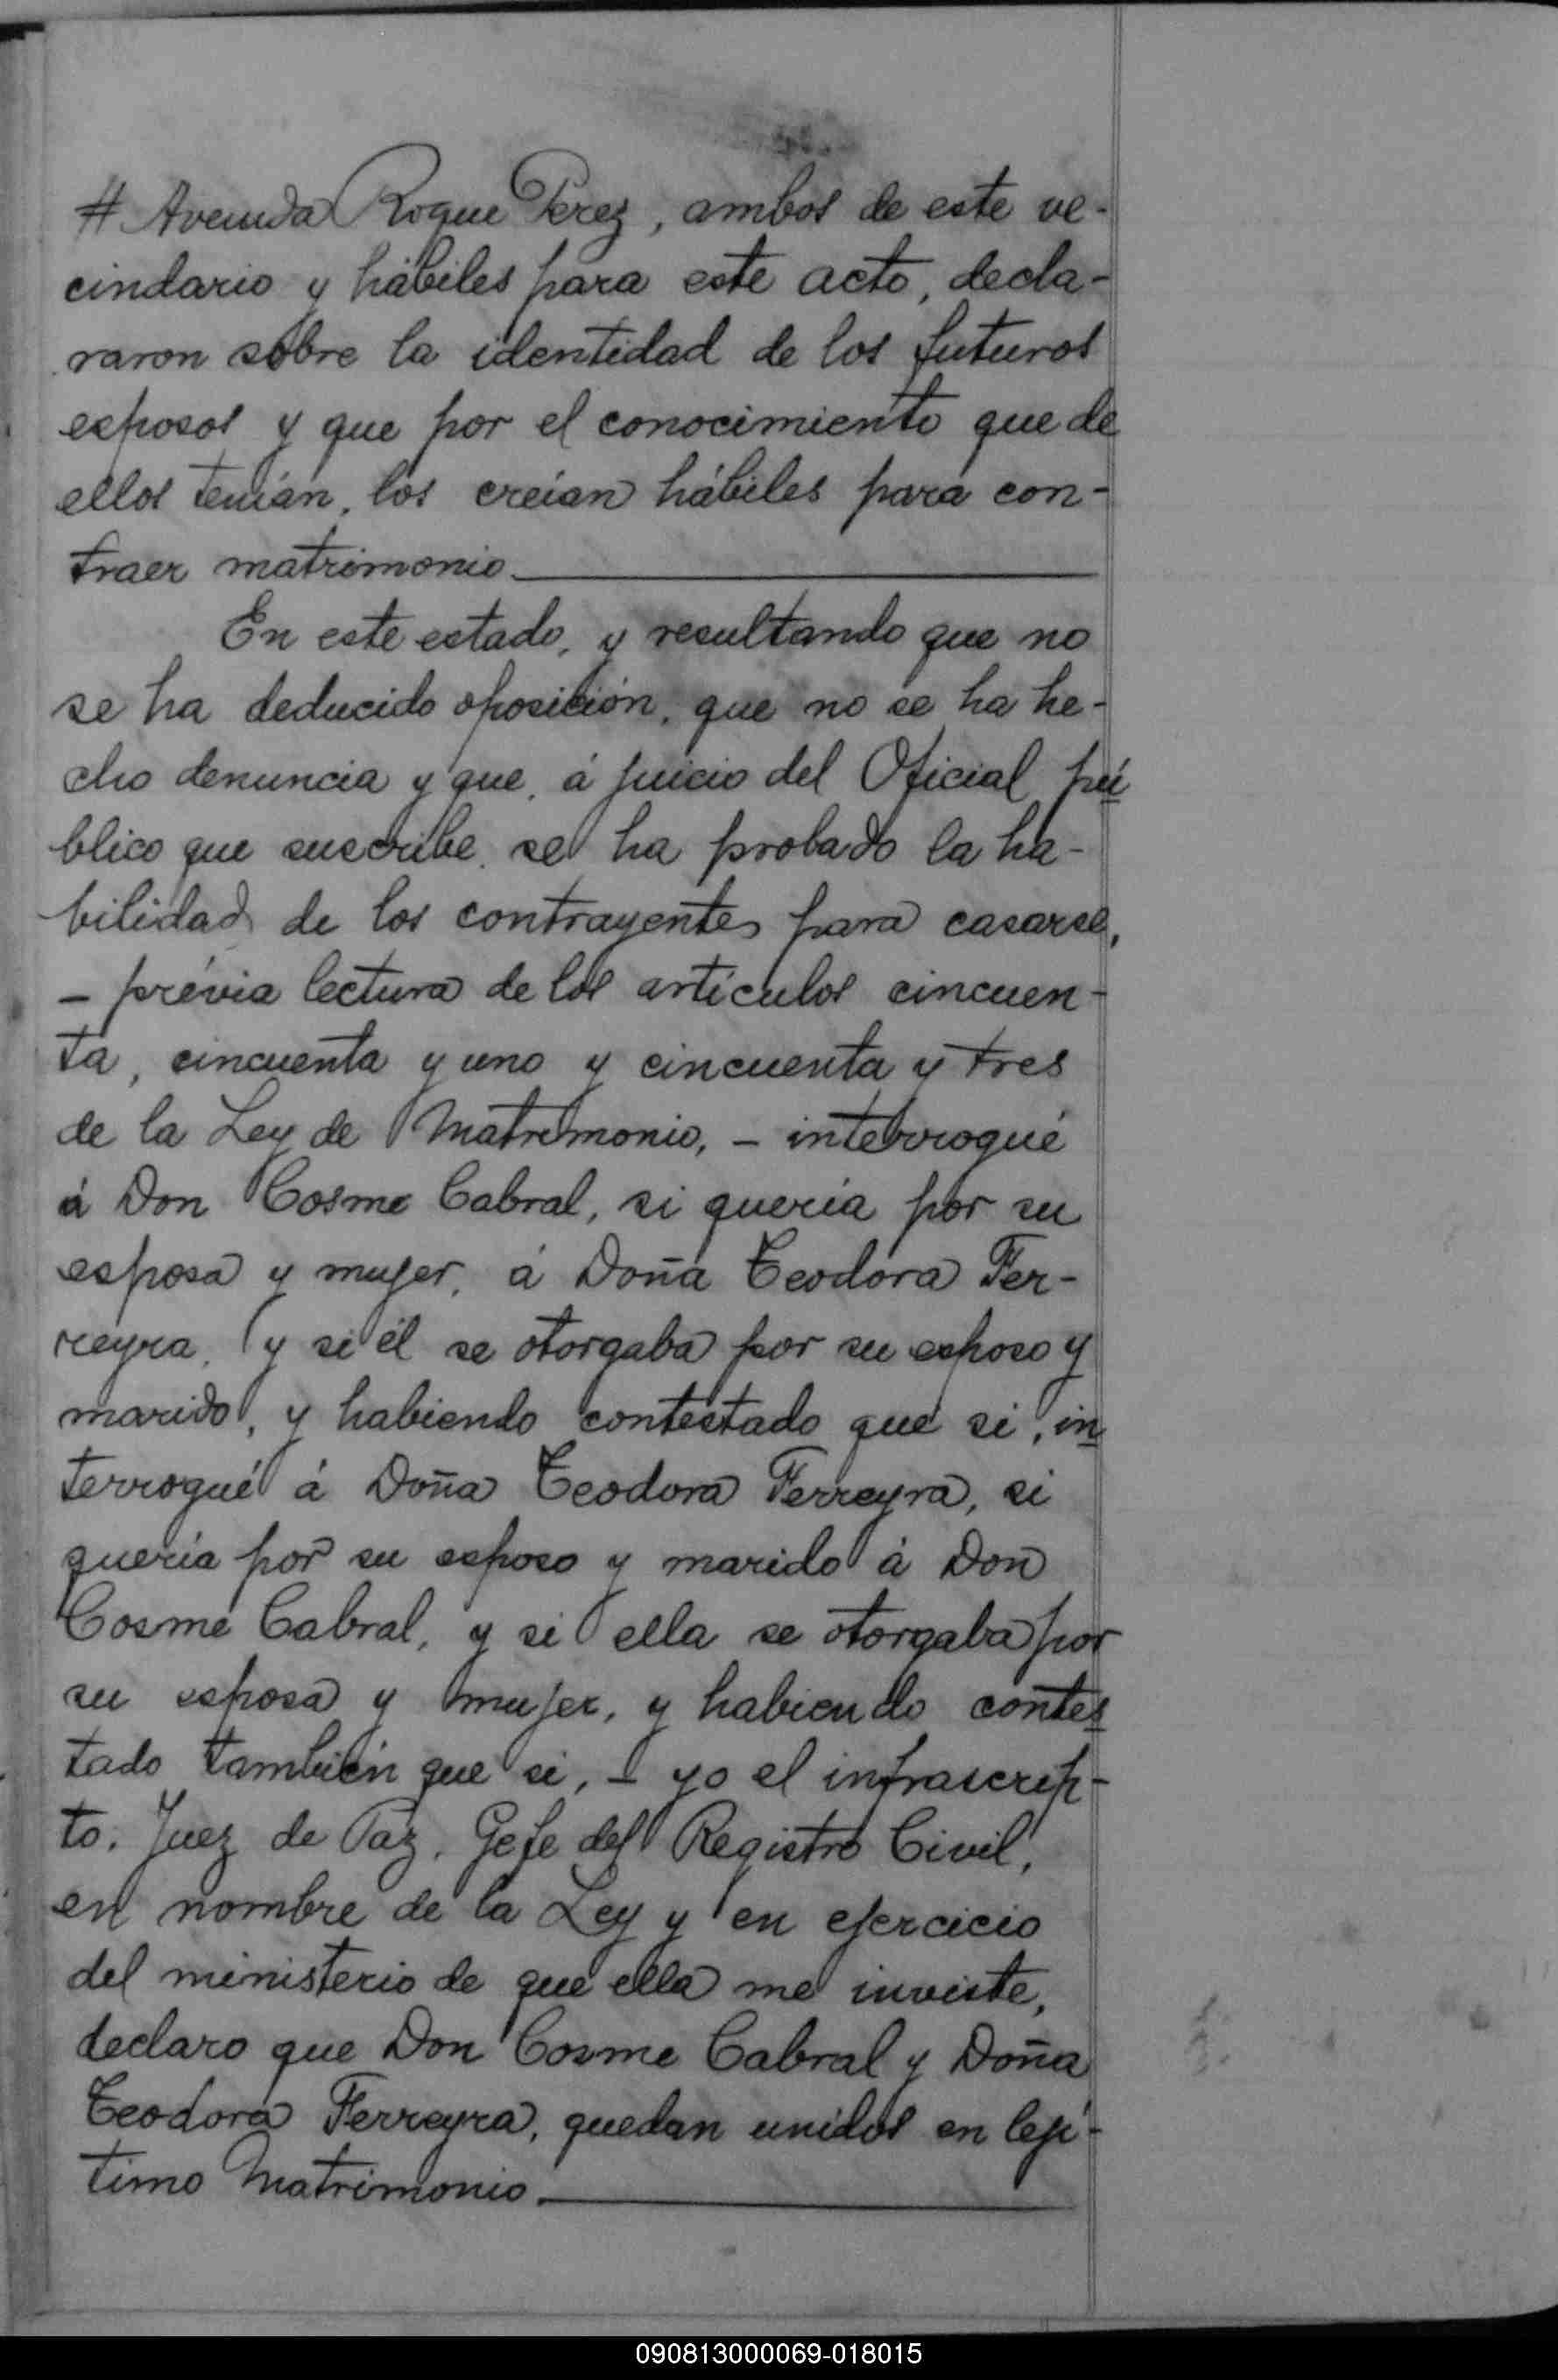 # Avenida Roque Perez, ambos de este ve-
cindario y hábiles para este acto, decla-
raron sobre la identidad de los futuros
esposos y que por el conocimiento que de
ellos tenían, los creían hábiles para con-
traer matrimonio.
En este estado, y resultando que no
se ha deducido oposición, que no se ha he-
cho denuncia y que, á juicio del Oficial pú
blico que suscribe, se ha probado la ha-
bilidad de los contrayentes para casarse,
- prévia lectura de los artículos cincuen-
ta, cincuenta y uno y cincuenta y tres
de la Ley de Matrimonio, - interrogué
á Don Cosme Cabral, si quería por su
esposa y mujer, á Doña Teodora Fer-
reyra, y si él se otorgaba por su esposo y
marido, y habiendo contestado que si, in
terrogué á Doña Teodora Ferreyra, si
quería por su esposo y marido á Don
Cosme Cabral, y si ella se otorgaba por
su esposa y mujer, y habiendo contes
tado también que si, - yo el infrascrip-
to, Juez de Paz, Gefe del Registro Civil,
en nombre de la Ley y en ejercicio
del ministerio de que ella me inviste,
declaro que Don Cosme Cabral y Doña
Teodora Ferreyra, quedan unidos en lejí-
timo Matrimonio.
090813000069-018015